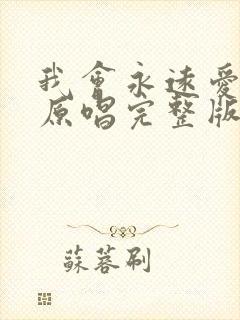 我會永遠愛
原唱完整版
蘇蓉刷